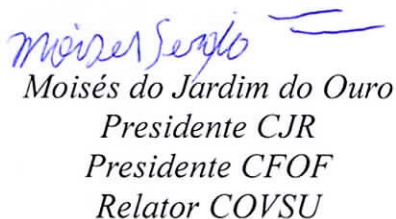 Moises Sergio
Moisés do Jardim do Ouro
Presidente CJR
Presidente CFOF
Relator COVSU